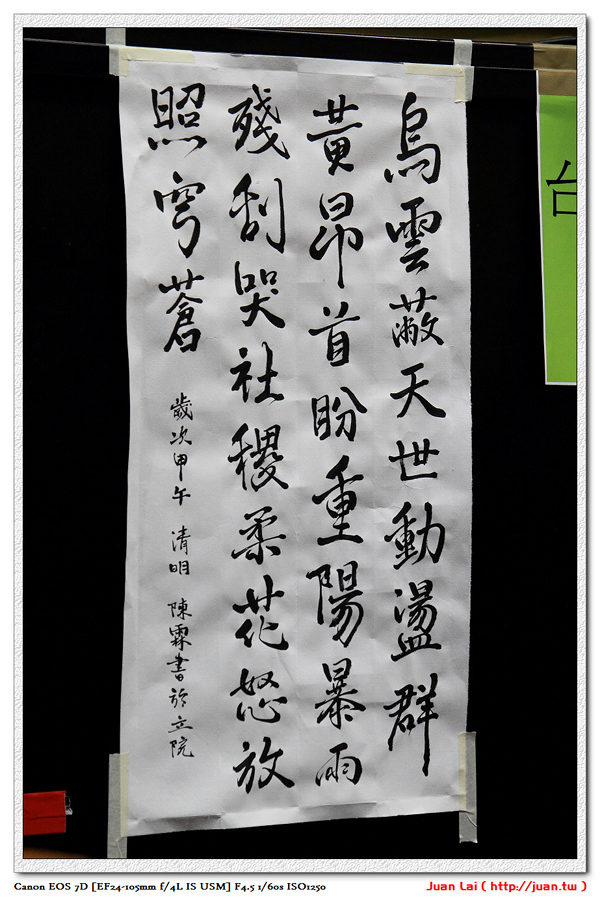 烏雲蔽天世動盪群
黃昂首盼重陽暴雨
殘刮哭社稷柔花怒放
照穹蒼
歲次甲午 清明 陳霖書於立院
台
Canon EOS 7D [EF24-105mm f/4L IS USM] F4.5 1/60s ISO1250
Juan Lai ( http://juan.tw )